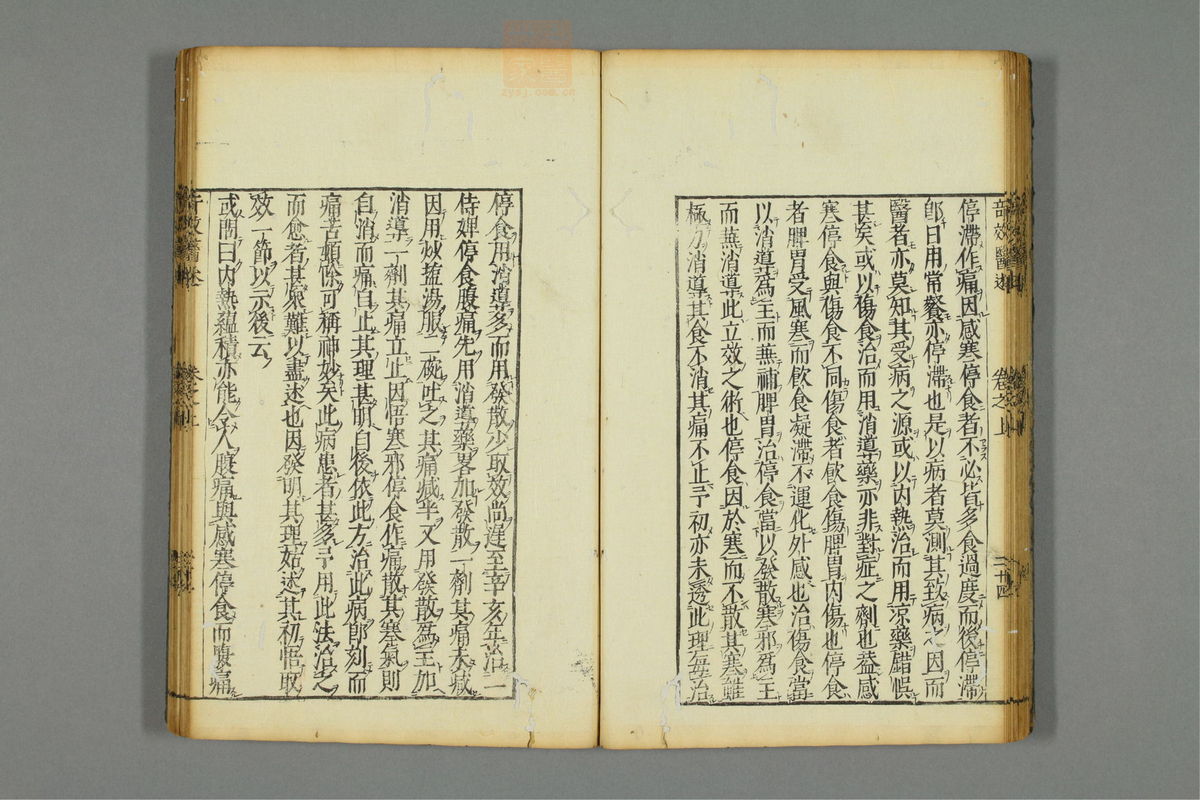 停滯作痛因感寒停食者不必皆多食過度而後停滯
卽日用常餐亦停滯也是以病者莫測其致病之因而
醫者亦莫知其受病之源或以内熱治而用凉藥錯悞
甚矣或以傷食治而用消導藥亦非對症之劑也葢感
寒停食與傷食不同傷食者飲食傷脾胃内傷也停食
者脾胃受風寒而飲食凝滯不運化外感也治傷食當
以消導爲主而蕪補脾胃治停食當以發散寒邪爲主
而蕪消導此立效之術也停食因於寒而不散其寒雖
極力消導其食不消其痛不止予初亦未透此理每治
停食用消導多而用發散少取效尚遲至辛亥年治一
侍婢停食腹痛先用消導藥畧加發散一劑其痛未减
因用炒盐湯服二碗吐之其痛减半又用發散爲主加
消導一劑其痛立止因悟寒邪停食作痛散其寒氣則
食自消而痛自止其理甚明白後依此方治此病卽刻而
痛苦頓除可稱神妙矣此病患者甚多予用此法治之
而愈者甚衆難以盡述也因發明其理姑述其初悟取
效一節以示後云
或問曰内熱蘊積亦能令人腹痛與感寒停食而腹痛
節效醫述
卷之上
二十四
zysj.com.cn